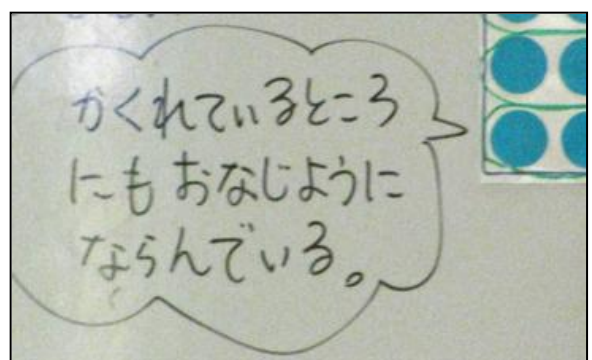 かくれているところ
にもおなじように
ならんでいる。